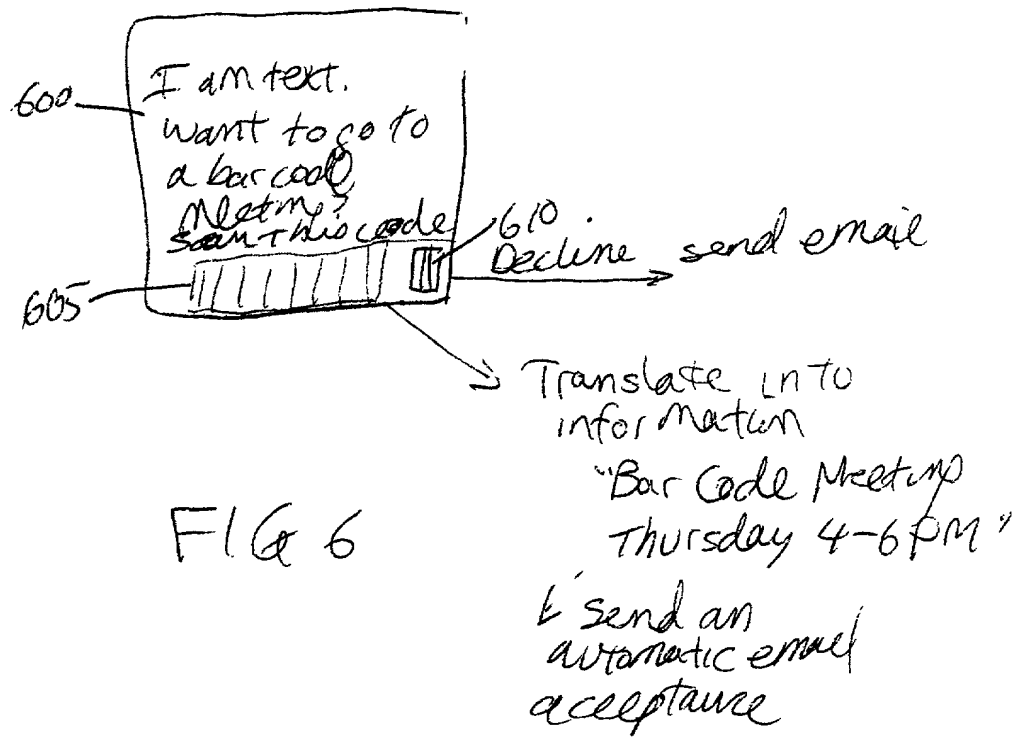 600
I am text.
want to go to
a bar code
Meeting?
scan this code
610
Decline
send email
605
Translate into
information
"Bar Code Meeting
Thursday 4-6 PM"
& send an
automatic email
acceptance
FIG 6